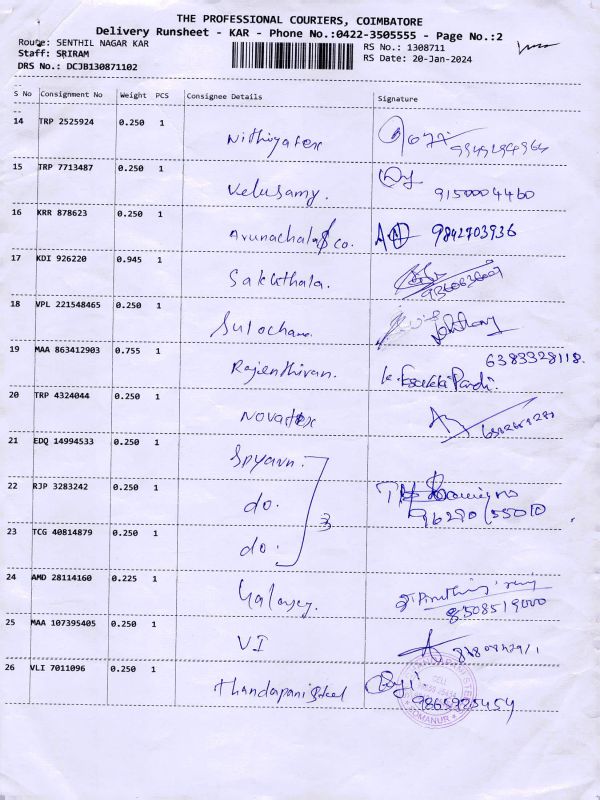 THE PROFESSIONAL COURIERS, COIMBATORE
Delivery Runsheet - KAR - Phone No.:0422-3505555 - Page No.:2
Route: SENTHIL NAGAR KAR RS No.: 1308711
Staff: SRIRAM RS Date: 20-Jan-2024
DRS No.: DCJB130871102
S No Consignment No Weight PCS Consignee Details Signature
14 TRP 2525924 0.250 1
Nithiyatex
15 TRP 7713487 0.250 1
Velusamy. 9150004460
16 KRR 878623 0.250 1
Arunachala & Co. 9842703936
17 KDI 926220 0.945 1
Sakkthala.
18 VPL 221548465 0.250 1
Sulochana
19 MAA 863412903 0.755 1
6383328118.
Rajenthiran. K. Esakki Pandi.
20 TRP 4324044 0.250 1
Novatex
21 EDQ 14994533 0.250 1
22 RJP 3283242 0.250 1
do. 3
23 TCG 40814879 0.250 1
do.
24 AMD 28114160 0.225 1
8508519000
25 MAA 107395405 0.250 1
VI
26 VLI 7011096 0.250 1
Thandapani Steel 9865925454
SOMANUR